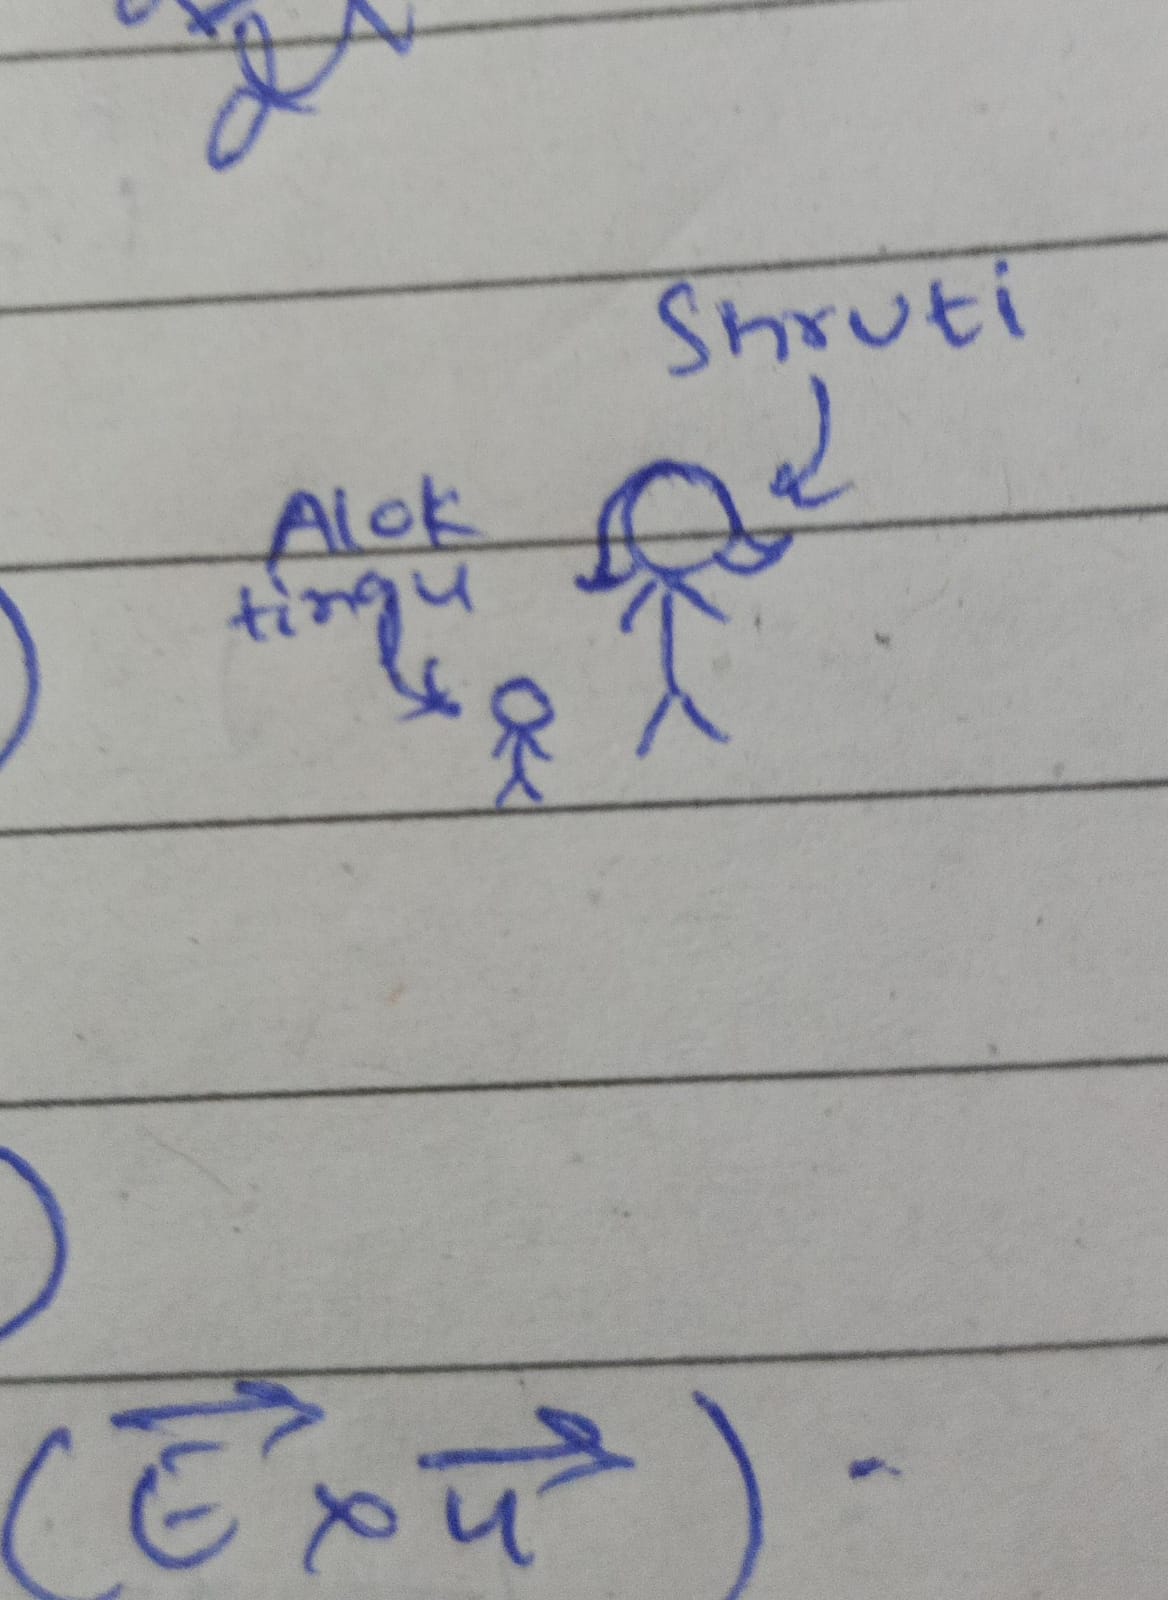 Shruti
Alok
tingu
(E⃗ × u⃗) -